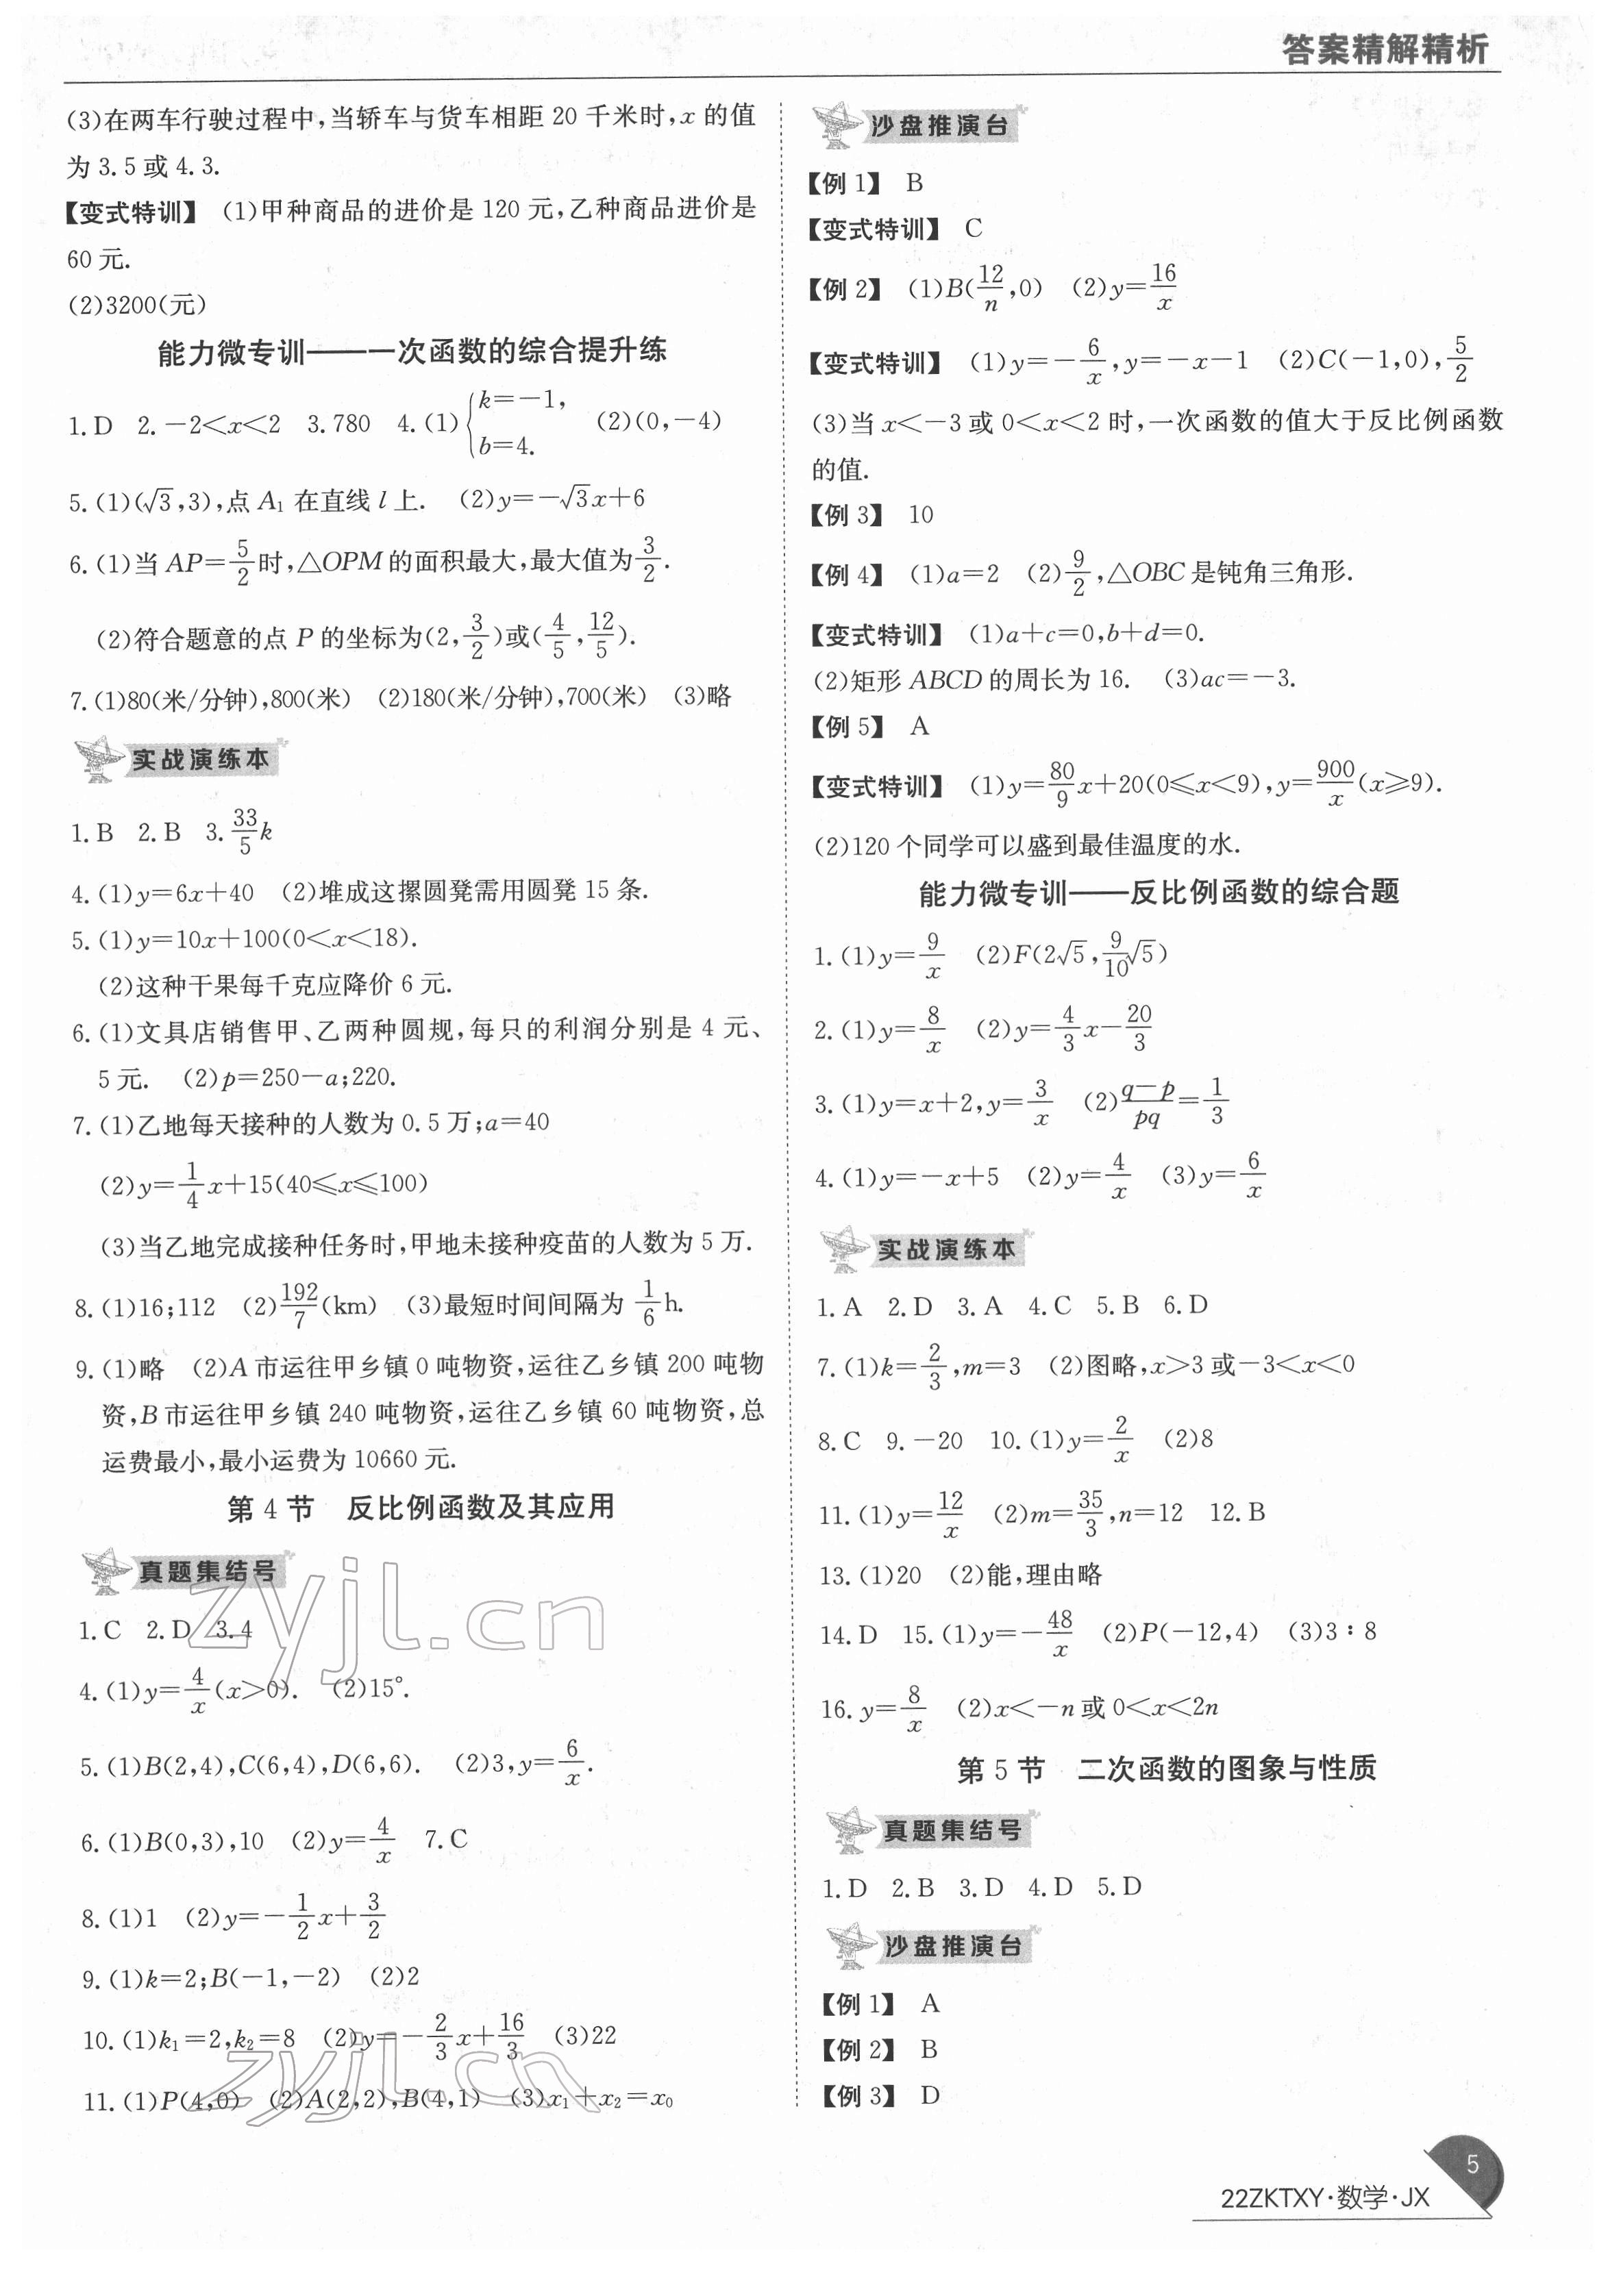 答案精解精析
(3)在两车行驶过程中,当轿车与货车相距 20 千米时,x 的值
为 3.5 或 4.3.
【变式特训】 (1)甲种商品的进价是 120 元,乙种商品进价是
60 元.
(2)3200(元)
能力微专训——一次函数的综合提升练
1.D 2.-2<x<2 3.780 4.(1){k=-1, b=4. (2)(0,-4)
5.(1)(√3,3),点 A₁ 在直线 l 上. (2)y=-√3x+6
6.(1)当 AP=5/2时,△OPM 的面积最大,最大值为3/2.
(2)符合题意的点 P 的坐标为(2,3/2)或(4/5,12/5).
7.(1)80(米/分钟),800(米) (2)180(米/分钟),700(米) (3)略
实战演练本
1.B 2.B 3.33/5k
4.(1)y=6x+40 (2)堆成这摞圆凳需用圆凳 15 条.
5.(1)y=10x+100(0<x<18).
(2)这种干果每千克应降价 6 元.
6.(1)文具店销售甲、乙两种圆规,每只的利润分别是 4 元、
5 元. (2)p=250-a;220.
7.(1)乙地每天接种的人数为 0.5 万;a=40
(2)y=1/4x+15(40≤x≤100)
(3)当乙地完成接种任务时,甲地未接种疫苗的人数为 5 万.
8.(1)16;112 (2)192/7(km) (3)最短时间间隔为 1/6h.
9.(1)略 (2)A 市运往甲乡镇 0 吨物资,运往乙乡镇 200 吨物
资,B 市运往甲乡镇 240 吨物资,运往乙乡镇 60 吨物资,总
运费最小,最小运费为 10660 元.
第 4 节 反比例函数及其应用
真题集结号
1.C 2.D 3.4
4.(1)y=4/x(x>0). (2)15°.
5.(1)B(2,4),C(6,4),D(6,6). (2)3,y=6/x.
6.(1)B(0,3),10 (2)y=4/x 7.C
8.(1)1 (2)y=-1/2x+3/2
9.(1)k=2;B(-1,-2) (2)2
10.(1)k₁=2,k₂=8 (2)y=-2/3x+16/3 (3)22
11.(1)P(4,0) (2)A(2,2),B(4,1) (3)x₁+x₂=x₀
zyjl.cn
zyjl.cn
沙盘推演台
【例 1】 B
【变式特训】 C
【例 2】 (1)B(12/n,0) (2)y=16/x
【变式特训】 (1)y=-6/x,y=-x-1 (2)C(-1,0),5/2
(3)当 x<-3 或 0<x<2 时,一次函数的值大于反比例函数
的值.
【例 3】 10
【例 4】 (1)a=2 (2)9/2,△OBC 是钝角三角形.
【变式特训】 (1)a+c=0,b+d=0.
(2)矩形 ABCD 的周长为 16. (3)ac=-3.
【例 5】 A
【变式特训】 (1)y=80/9x+20(0≤x<9),y=900/x(x≥9).
(2)120 个同学可以盛到最佳温度的水.
能力微专训——反比例函数的综合题
1.(1)y=9/x (2)F(2√5,9/10√5)
2.(1)y=8/x (2)y=4/3x-20/3
3.(1)y=x+2,y=3/x (2)(q-p)/pq=1/3
4.(1)y=-x+5 (2)y=4/x (3)y=6/x
实战演练本
1.A 2.D 3.A 4.C 5.B 6.D
7.(1)k=2/3,m=3 (2)图略,x>3 或-3<x<0
8.C 9.-20 10.(1)y=2/x (2)8
11.(1)y=12/x (2)m=35/3,n=12 12.B
13.(1)20 (2)能,理由略
14.D 15.(1)y=-48/x (2)P(-12,4) (3)3∶8
16.y=8/x (2)x<-n 或 0<x<2n
第 5 节 二次函数的图象与性质
真题集结号
1.D 2.B 3.D 4.D 5.D
沙盘推演台
【例 1】 A
【例 2】 B
【例 3】 D
5
22ZKTXY·数学·JX